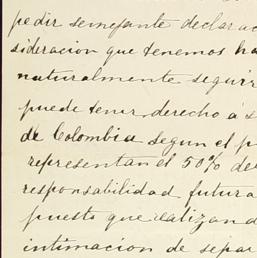 pedir semejante declarac
sideracion que tenemos ha
naturalmente seguir
puede tener derecho á s
de Colombia segun el p
representan el 50% de
responsabilidad futura
puesto que realizand
intimacion de separ